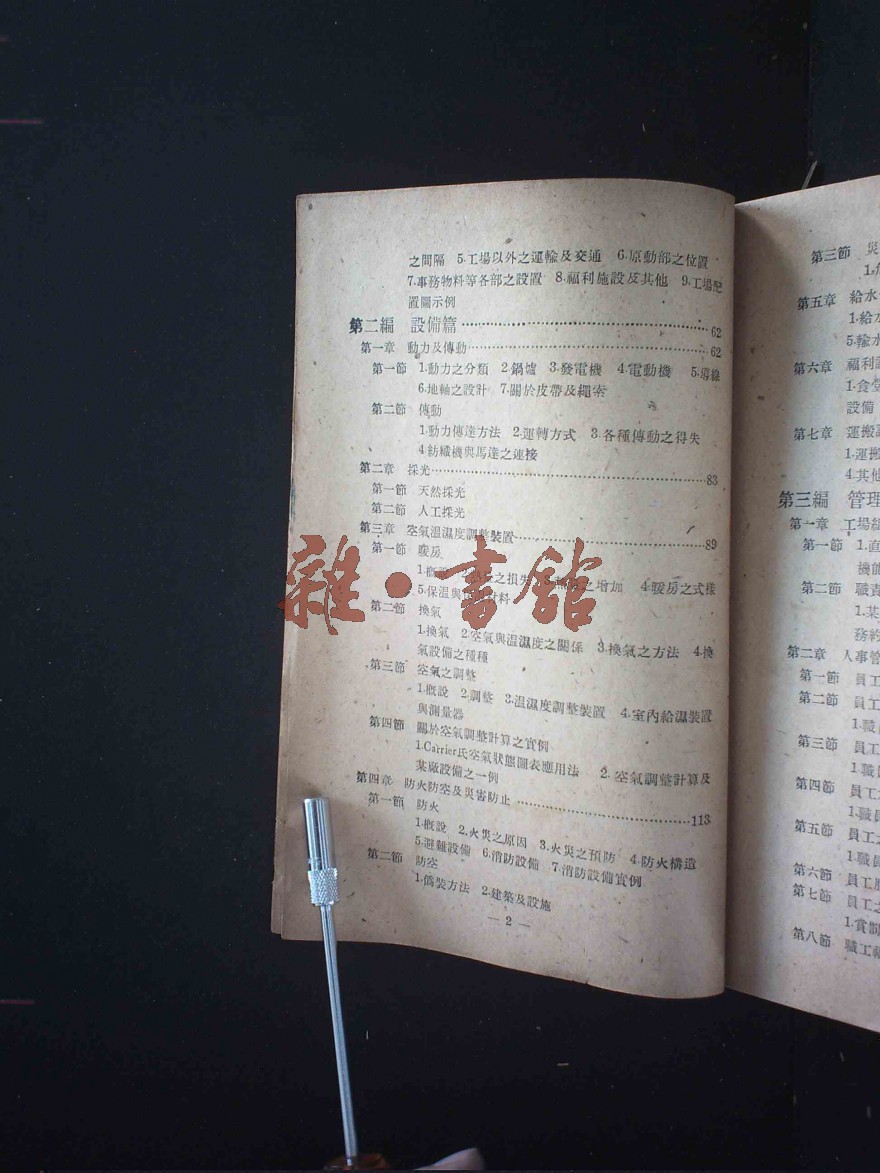 之間隔 5.工場以外之運輸及交通 6.原動部之位置
7.事務物料等各部之設置 8.福利施設及其他 9.工場配
置圖示例
第二編 設備篇 62
第一章 動力及傳動 62
第一節 1.動力之分類 2.鍋爐 3.發電機 4.電動機 5.導線
6.地軸之設計 7.關於皮帶及繩索
第二節 傳動
1.動力傳達方法 2.運轉方式 3.各種傳動之得失
4.紡織機與馬達之連接
第二章 採光 83
第一節 天然採光
第二節 人工採光
第三章 空氣溫濕度調整裝置 89
第一節 暖房
1.概設 之損失 之增加 4.暖房之式樣
5.保溫與 材料
第二節 換氣
1.換氣 2.空氣與溫濕度之關係 3.換氣之方法 4.換
氣設備之種種
第三節 空氣之調整
1.概設 2.調整 3.溫濕度調整裝置 4.室內給濕裝置
與測量器
第四節 關於空氣調整計算之實例
1.Carrier氏空氣狀態圖表應用法 2.空氣調整計算及
某廠設備之一例
第四章 防火防空及災害防止 113
第一節 防火
1.概設 2.火災之原因 3.火災之預防 4.防火構造
5.避難設備 6.消防設備 7.消防設備實例
第二節 防空
1.僞裝方法 2.建築及設施
— 2 —
雜·書館
第三節 災
1.
第五章 給水
1.給水
5.輸水
第六章 福利
1.食堂
設備
第七章 運搬
1.運搬
4.其他
第三編 管理
第一章 工場組
第一節 1.直
機能
第二節 職責
1.某
務約
第二章 人事管
第一節 員工
第二節 員工
1.職
第三節 員工
1.職
第四節 員工
1.職員
第五節 員工
1.職員
第六節 員工
第七節 員工之
1.賞
第八節 職工